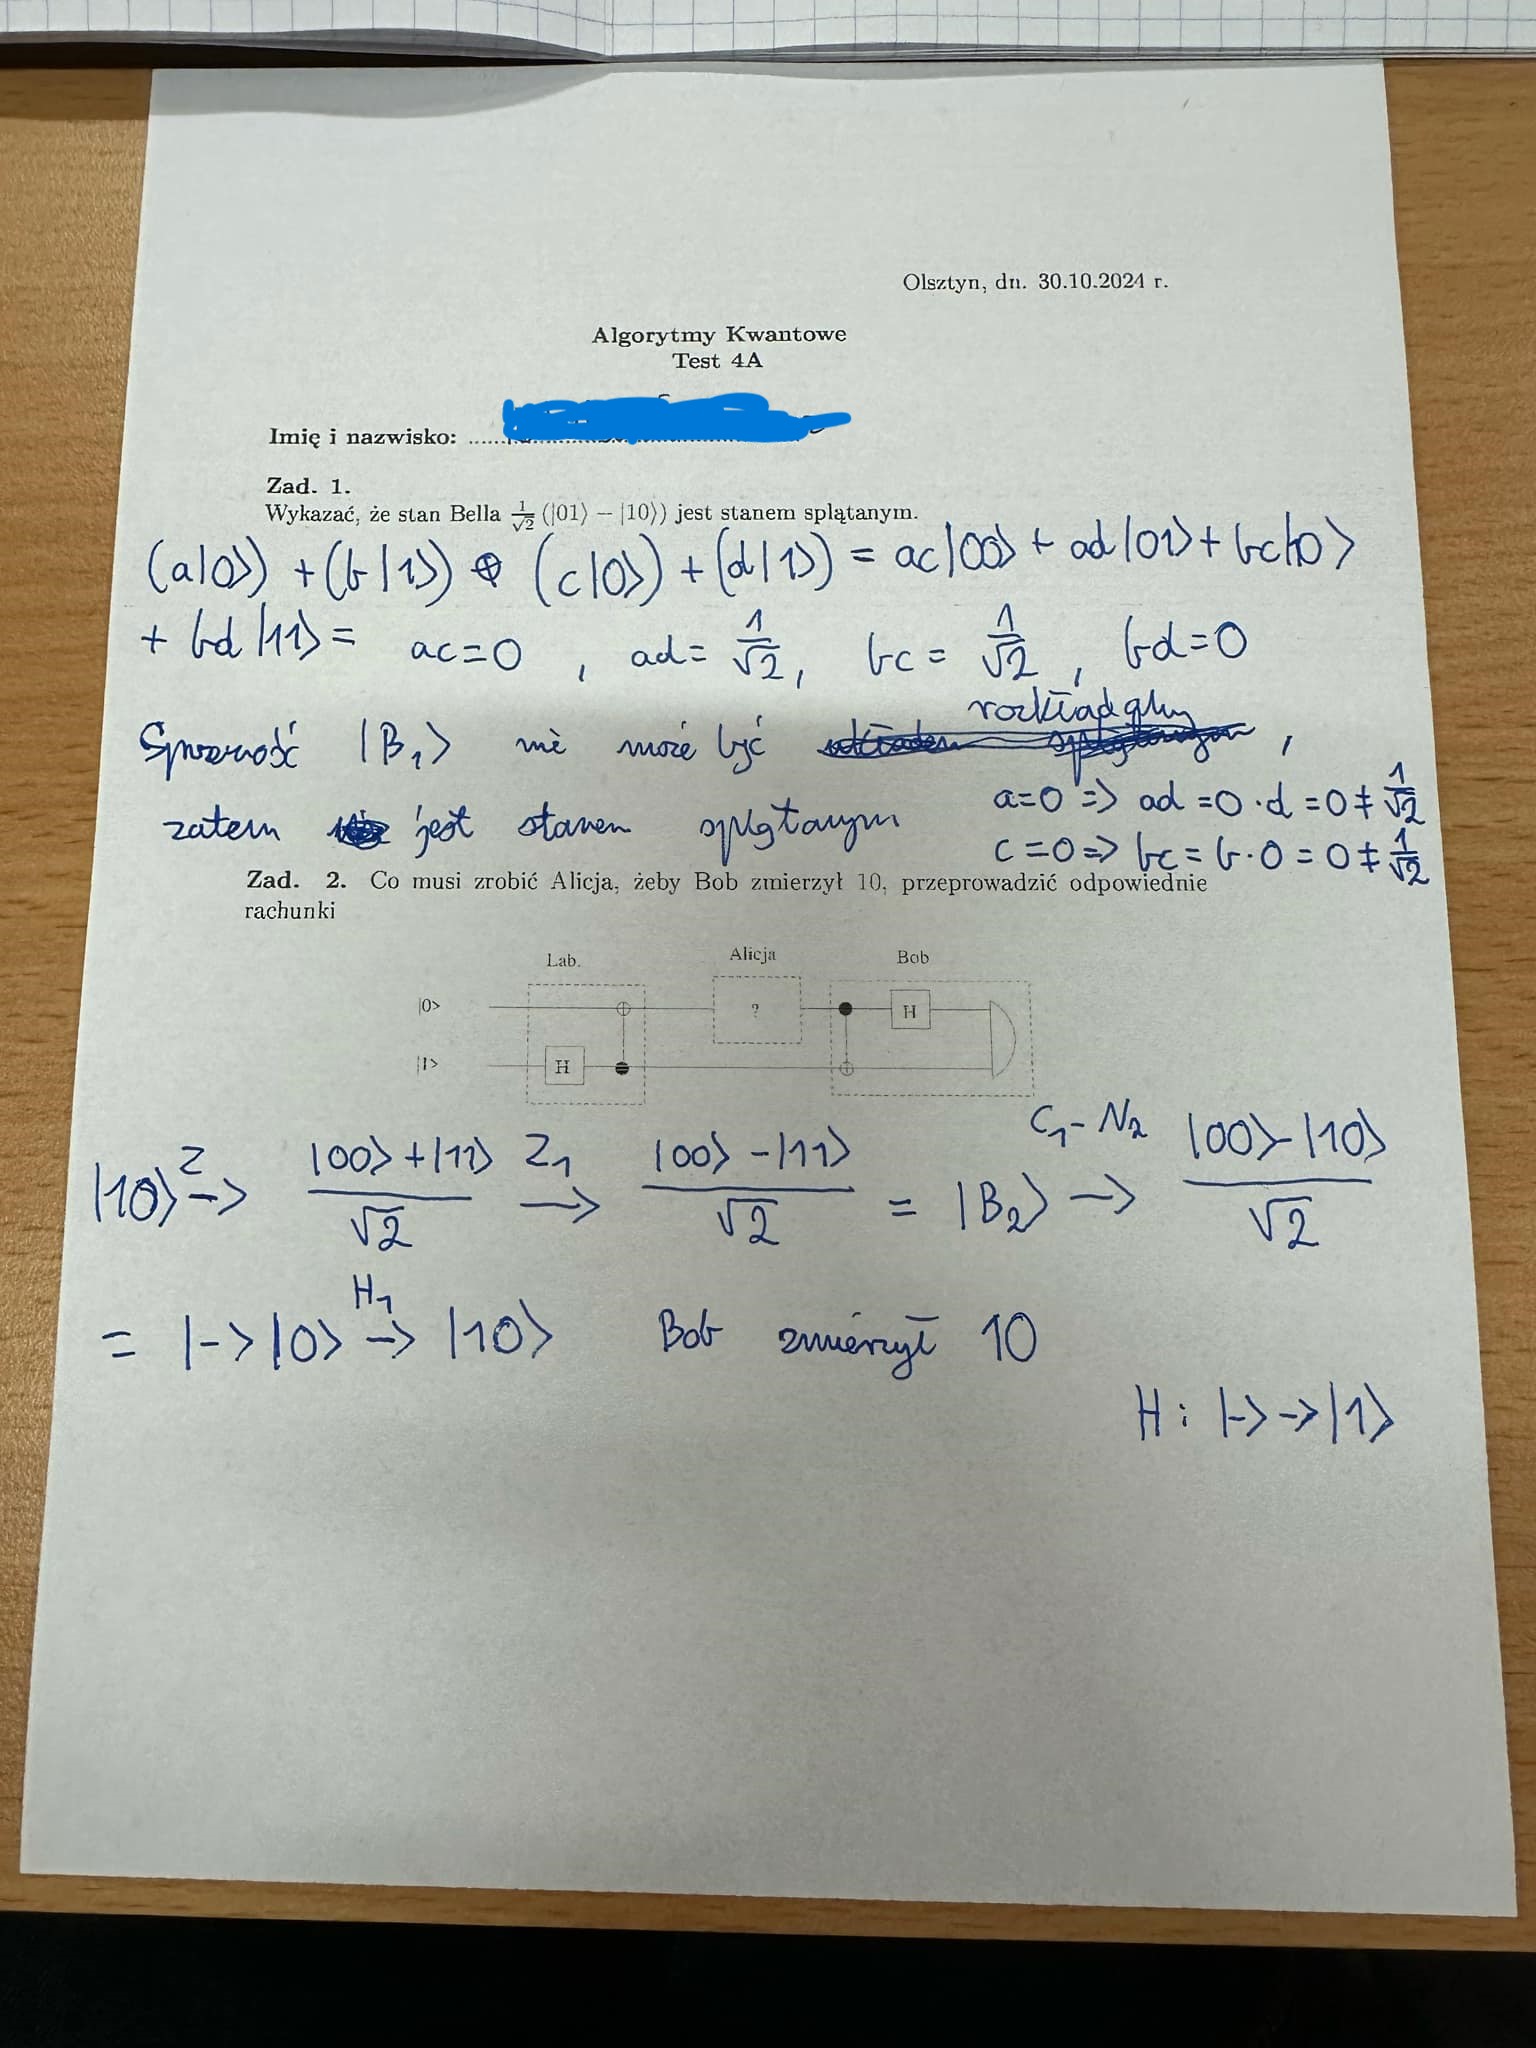 Olsztyn, dn. 30.10.2024 r.
Algorytmy Kwantowe
Test 4A
Imię i nazwisko:
Zad. 1.
Wykazać, że stan Bella 1/√2 (|01⟩ − |10⟩) jest stanem splątanym.
(a|0⟩) + (b|1⟩) ⊕ (c|0⟩) + (d|1⟩) = ac|00⟩ + ad|01⟩ + bc|10⟩
+ bd|11⟩ = ac=0, ad= 1/√2, bc = 1/√2, bd=0
rozkładalny
|B₁⟩ nie może być ,
a=0 => ad =0·d =0≠ 1/√2
zatem jest stanem splątanym
c=0 => bc = b·0 = 0≠ 1/√2
Zad. 2. Co musi zrobić Alicja, żeby Bob zmierzył 10, przeprowadzić odpowiednie
rachunki
Lab. Alicja Bob
|0> ? H
|1> H
|10⟩ Z→ |00⟩+|11⟩/√2 Z₁→ |00⟩−|11⟩/√2 = |B₂⟩ C₁-N₂→ |00⟩-|10⟩/√2
= |-⟩|0⟩ H₁→ |10⟩ Bob zmierzył 10
H: |-⟩→|1⟩